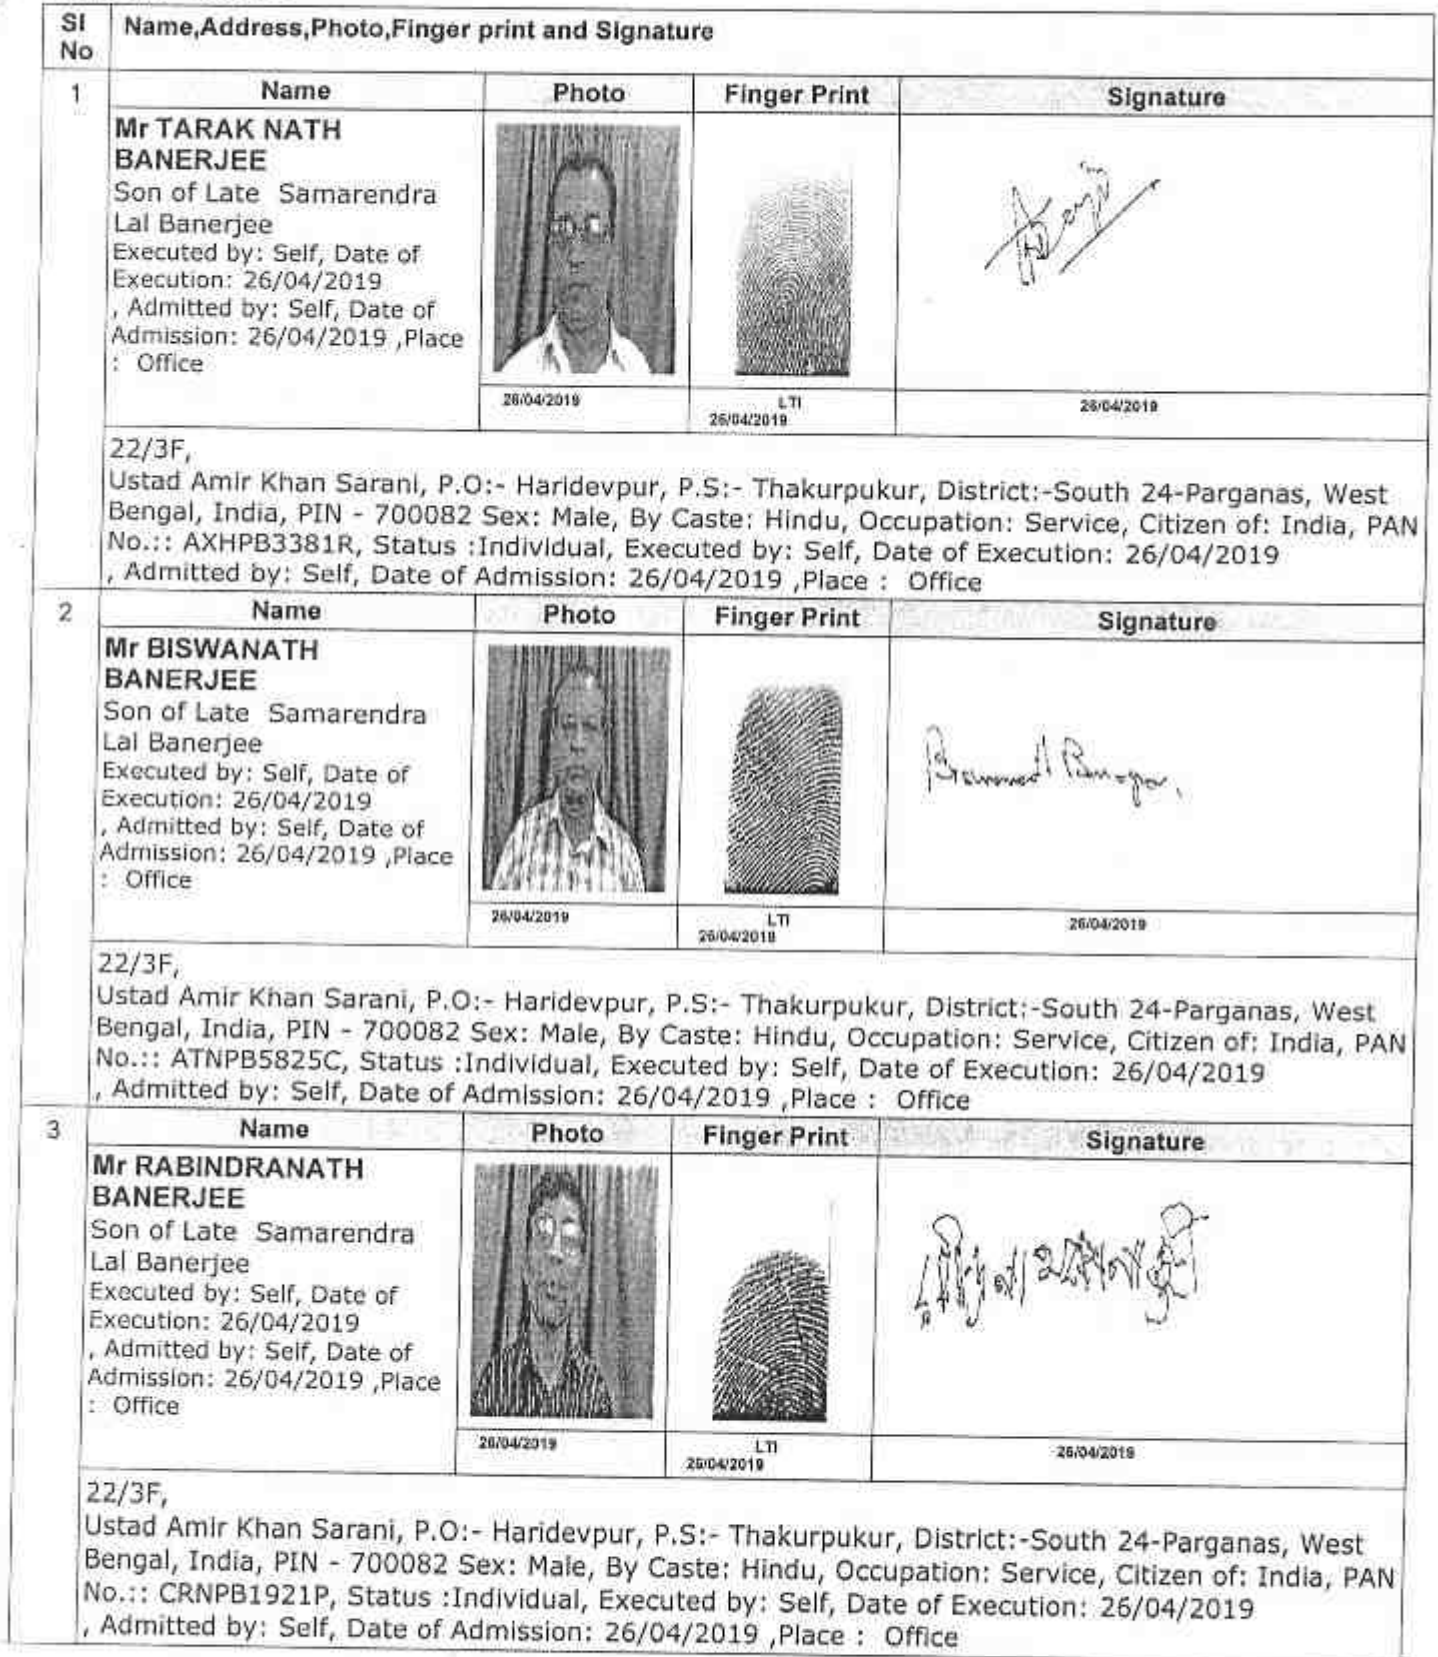 Sl No
Name,Address,Photo,Finger print and Signature
1
Name Photo Finger Print Signature
Mr TARAK NATH
BANERJEE
Son of Late Samarendra
Lal Banerjee
Executed by: Self, Date of
Execution: 26/04/2019
, Admitted by: Self, Date of
Admission: 26/04/2019 ,Place
: Office
26/04/2019
LTI
26/04/2019
26/04/2019
22/3F,
Ustad Amir Khan Sarani, P.O:- Haridevpur, P.S:- Thakurpukur, District:-South 24-Parganas, West
Bengal, India, PIN - 700082 Sex: Male, By Caste: Hindu, Occupation: Service, Citizen of: India, PAN
No.:: AXHPB3381R, Status :Individual, Executed by: Self, Date of Execution: 26/04/2019
, Admitted by: Self, Date of Admission: 26/04/2019 ,Place : Office
2
Name Photo Finger Print Signature
Mr BISWANATH
BANERJEE
Son of Late Samarendra
Lal Banerjee
Executed by: Self, Date of
Execution: 26/04/2019
, Admitted by: Self, Date of
Admission: 26/04/2019 ,Place
: Office
26/04/2019
LTI
26/04/2019
26/04/2019
22/3F,
Ustad Amir Khan Sarani, P.O:- Haridevpur, P.S:- Thakurpukur, District:-South 24-Parganas, West
Bengal, India, PIN - 700082 Sex: Male, By Caste: Hindu, Occupation: Service, Citizen of: India, PAN
No.:: ATNPB5825C, Status :Individual, Executed by: Self, Date of Execution: 26/04/2019
, Admitted by: Self, Date of Admission: 26/04/2019 ,Place : Office
3
Name Photo Finger Print Signature
Mr RABINDRANATH
BANERJEE
Son of Late Samarendra
Lal Banerjee
Executed by: Self, Date of
Execution: 26/04/2019
, Admitted by: Self, Date of
Admission: 26/04/2019 ,Place
: Office
26/04/2019
LTI
26/04/2019
26/04/2019
22/3F,
Ustad Amir Khan Sarani, P.O:- Haridevpur, P.S:- Thakurpukur, District:-South 24-Parganas, West
Bengal, India, PIN - 700082 Sex: Male, By Caste: Hindu, Occupation: Service, Citizen of: India, PAN
No.:: CRNPB1921P, Status :Individual, Executed by: Self, Date of Execution: 26/04/2019
, Admitted by: Self, Date of Admission: 26/04/2019 ,Place : Office